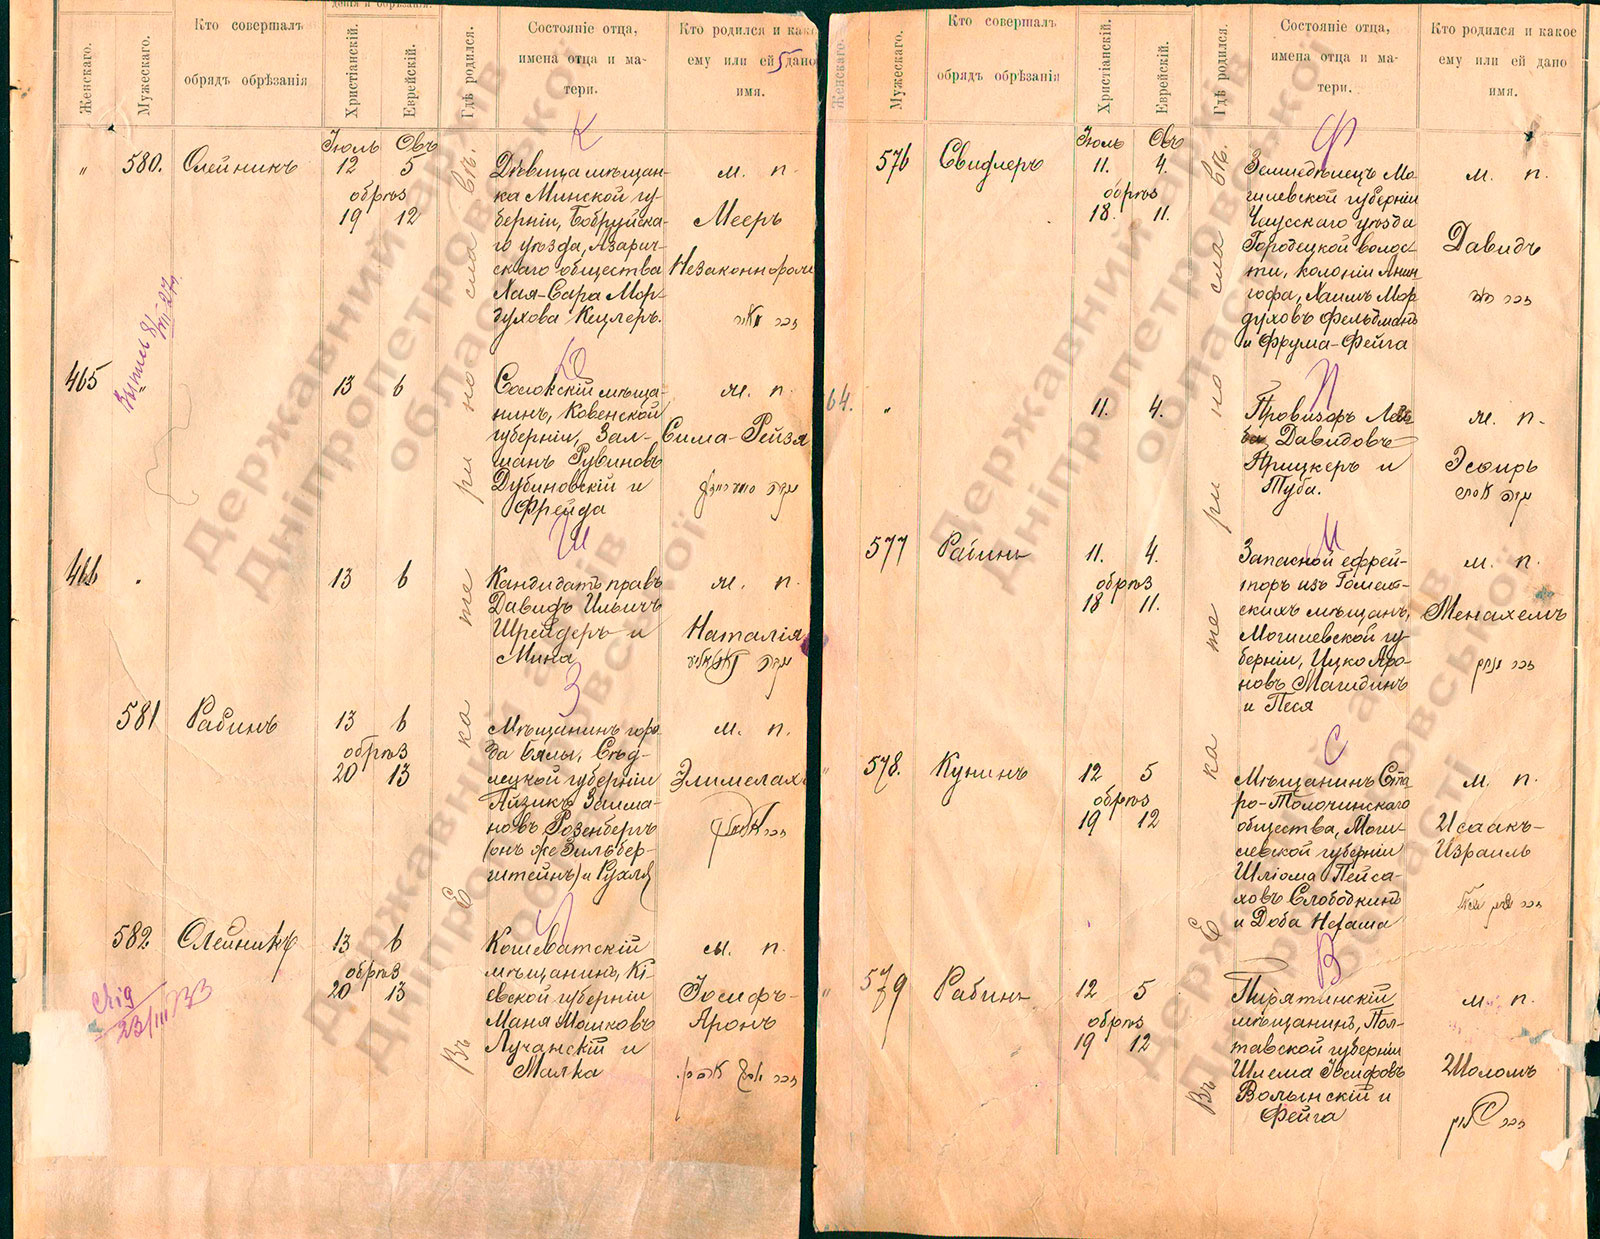 Женскаго.
Мужескаго.
Кто совершалъ
обрядъ обрѣзанія
Христіанскій.
Еврейскій.
Гдѣ родился.
Состояніе отца,
имена отца и ма-
тери.
Кто родился и како
ему или ей дано
имя.
5
К
Іюль Овъ
" 580. Олейникъ 12 5
обрѣз
19 12
Дѣвица мѣщан-
ка Минской гу-
берніи, Бобруйска-
го уѣзда, Азарич-
скаго общества
Хая-Сара Мор-
духова Кецлеръ.
м. п.
Мееръ
Незаконнорожд
זכר מאיר
465 13 6
Ю
мѣща-
нинъ, Ковенской
губерніи, Зал-
манъ Рувиновъ
Дубиновскій и
Фрейда
м. п.
Сима-Рейзя
466 13 6
Ш
Кандидатъ правъ
Давидъ Ильичъ
Шрейдеръ и
Мина
м. п.
Наталія
581 Рабинъ 13 6
обрѣз
20 13
З
Мѣщанинъ горо-
да Бялы, Сѣд-
лецкой губерніи
Айзикъ Залма-
новъ Розенбергъ
(онъ же Зильбер-
штейнъ) и Рухля
м. п.
Элимелахъ
582 Олейникъ 13 6
обрѣз
20 13
Кошеватскій
мѣщанинъ, Кі-
евской губерніи
Маня Мошковъ
Лучанскій и
Малка
м. п.
Іосифъ-
Аронъ
23/III 33
Въ Е ка те ри но сла вѣ.
Женскаго.
Мужескаго.
Кто совершалъ
обрядъ обрѣзанія
Христіанскій.
Еврейскій.
Гдѣ родился.
Состояніе отца,
имена отца и ма-
тери.
Кто родился и какое
ему или ей дано
имя.
Ф
Іюль Овъ
576 Свифлеръ 11. 4.
обрѣз
18. 11.
Земледѣлецъ Мо-
гилевской губерніи
Чаусскаго уѣзда
Городецкой волос-
ти, колоніи Лнин-
гофа, Хаимъ Мор
духовъ Фельдманъ
и Фрума-Фейга
м. п.
Давидъ
זכר דוד
64. " 11. 4.
П
Провизоръ Лей-
ба Давидовъ
Прицкеръ и
Туба.
м. п.
Эсѳирь
577 Рабинъ 11. 4.
обрѣз
18 11.
М
Запасной ефрей-
торъ изъ Гомель-
скихъ мѣщанъ,
Могилевской гу-
берніи, Ицко Аро-
новъ Магидинъ
и Песя
м. п.
Менахемъ
זכר מנחם
578. Кунинъ 12 5
обрѣз
19 12
С
Мѣщанинъ Ста-
ро-Толочинскаго
общества, Моги-
левской губерніи
Шлiома Пейса-
ховъ Слободкинъ
и Доба Нехаша
м. п.
Исаакъ-
Израиль
579 Рабинъ 12 5
обрѣз
19 12
В
Пирятинскій
мѣщанинъ, Пол-
тавской губерніи
Шлема Іосифовъ
Волынскій и
Фейга
м. п.
Шоломъ
זכר שלום
Въ Е ка те ри но сла вѣ.
Державний архів
Дніпропетровської
області